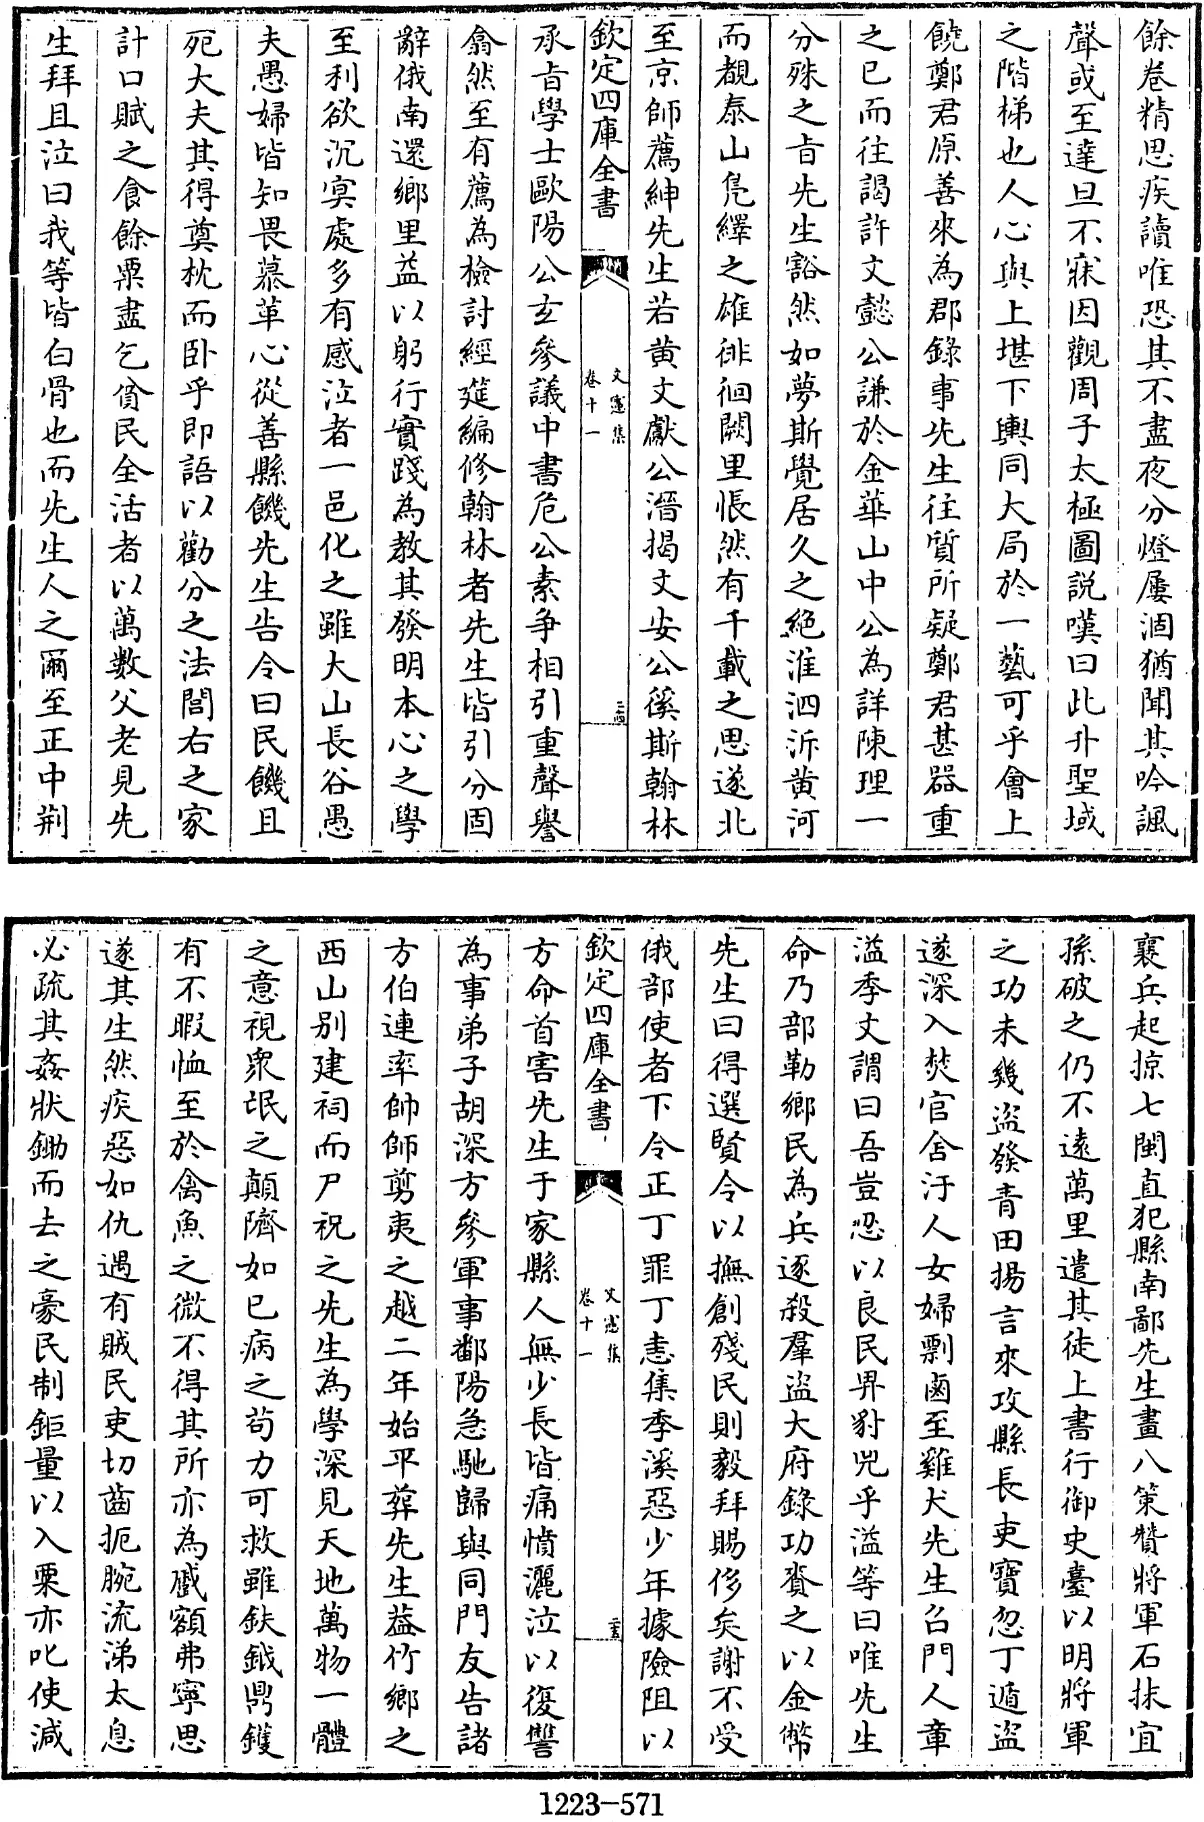 餘卷精思疾讀唯恐其不盡夜分燈屢涸猶聞其吟諷
聲或至達旦不寐因觀周子太極圖説嘆曰此升聖域
之階梯也人心與上堪下輿同大局於一藝可乎會上
饒鄭君原善來為郡錄事先生往質所疑鄭君甚器重
之已而往謁許文懿公謙於金華山中公為詳陳理一
分殊之旨先生豁然如夢斯覺居久之絶淮泗泝黄河
而覩泰山鳬繹之雄徘徊闕里悵然有千載之思遂北
至京師薦紳先生若黄文獻公溍揭文安公徯斯翰林
欽定四庫全書
文憲集
卷十一
承旨學士歐陽公玄參議中書危公素争相引重聲譽
翕然至有薦為檢討經筵編修翰林者先生皆引分固
辭俄南還鄉里益以躬行實踐為教其發明本心之學
至利欲沉寞處多有感泣者一邑化之雖大山長谷愚
夫愚婦皆知畏慕革心從善縣饑先生告令曰民饑且
死大夫其得奠枕而卧乎即語以勸分之法閭右之家
計口賦之食餘粟盡乞貧民全活者以萬數父老見先
生拜且泣曰我等皆白骨也而先生人之爾至正中荆
襄兵起掠七閩直犯縣南鄙先生畫八策贊將軍石抹宜
孫破之仍不遠萬里遣其徒上書行御史臺以明將軍
之功未幾盗發青田揚言來攻縣長吏寶忽丁遁盗
遂深入焚官舍汙人女婦剽鹵至雞犬先生召門人章
溢季丈謂曰吾豈忍以良民畀豺兕乎溢等曰唯先生
命乃部勒鄉民為兵逐殺羣盗大府錄功賚之以金幣
先生曰得選賢令以撫創殘民則毅拜賜侈矣謝不受
俄部使者下令正丁罪丁恚集季溪惡少年據險阻以
欽定四庫全書
文憲集
卷十一
方命首害先生于家縣人無少長皆痛憤灑泣以復讐
為事弟子胡深方參軍事鄱陽急馳歸與同門友告諸
方伯連率帥師剪夷之越二年始平葬先生益竹鄉之
西山别建祠而尸祝之先生為學深見天地萬物一體
之意視衆氓之顛隮如已病之苟力可救雖鈇鉞鼎鑊
有不暇恤至於禽魚之微不得其所亦為慼額弗寧思
遂其生然疾惡如仇遇有賊民吏切齒扼腕流涕太息
必疏其姦狀鋤而去之豪民制鉅量以入粟亦叱使減
1223-571